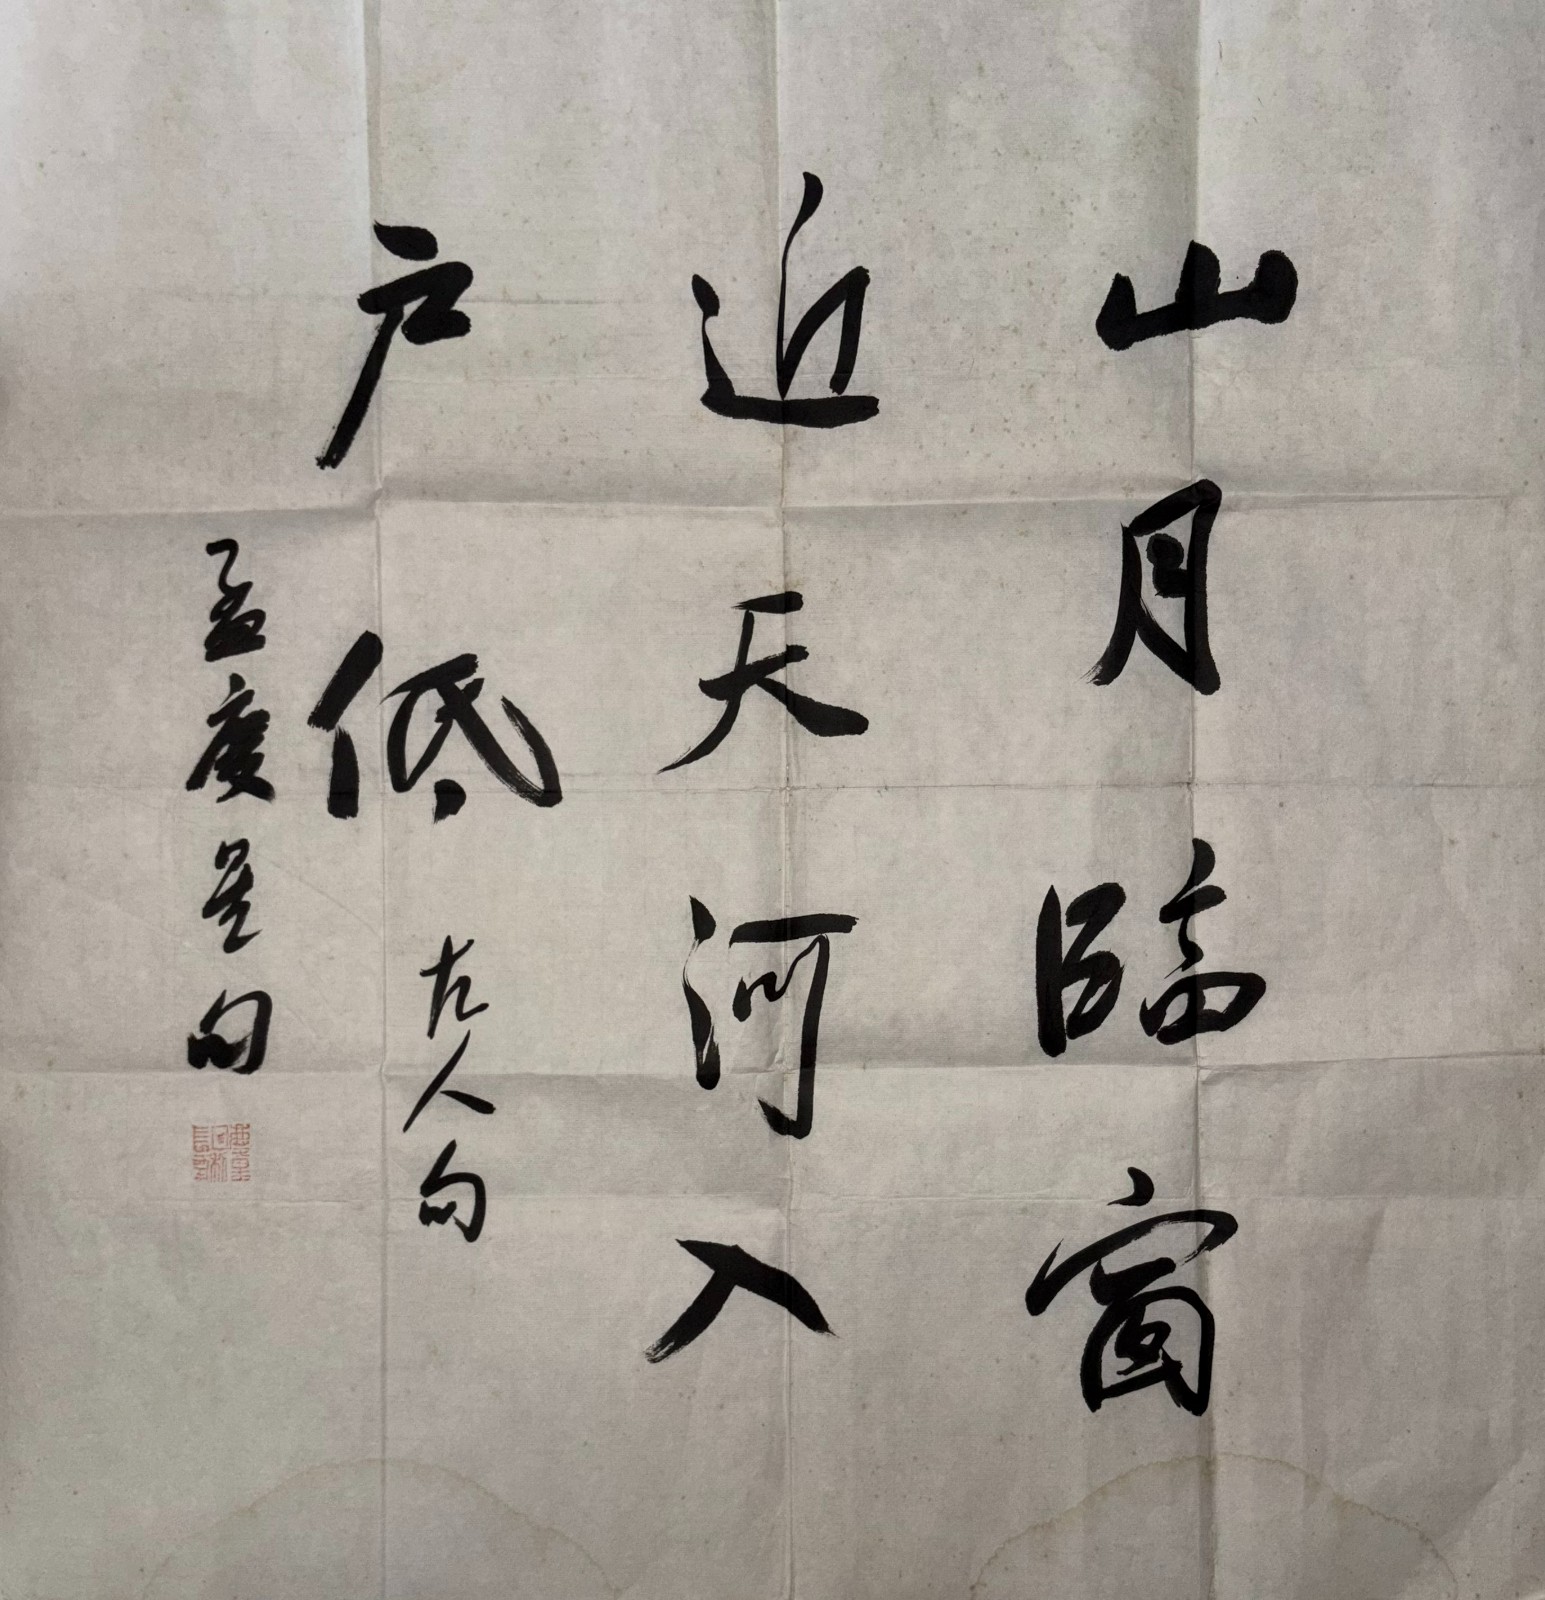 山月臨窗
近天河入
户低
古人句
孟慶星句